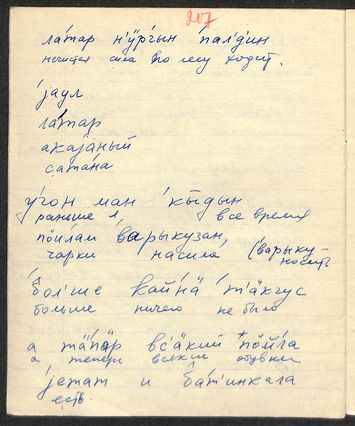 207
ла́тар н'ӱ́рг'ын 'пал'д'ин
нечистая сила по лесу ходит.
'јаул
ла́тар
акаја́ный
сатана́
у́гон ман 'кы́дын
раньше я, все время
пӧйлам 'варыкузан,
чарки носила (варыку-
носить
бо́л'ше кайнӓ т'ӓкгус
больше ничего не было
а тӓпӓр вс'ӓкий пӧйла
а теперь всякие обувки
'јетат и ба́т'инкала
есть.